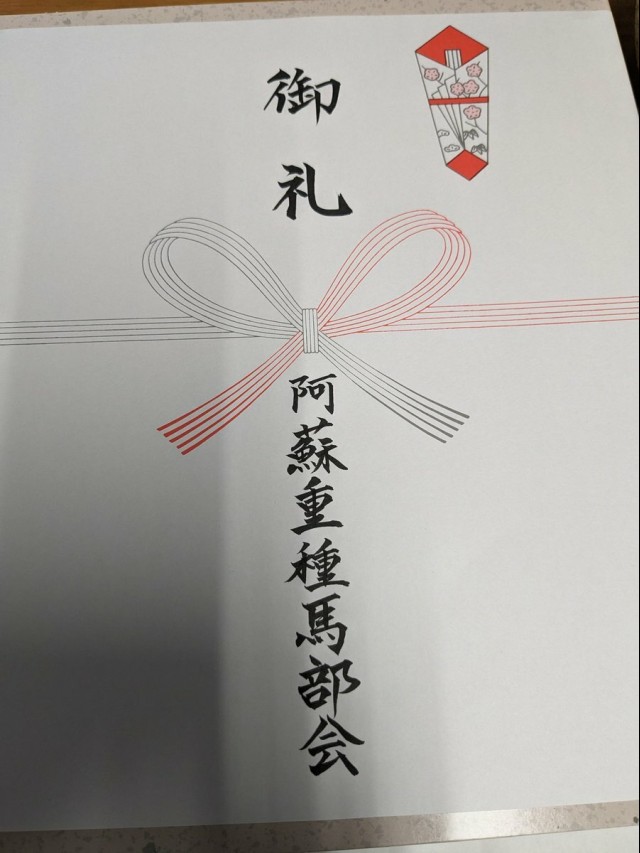 御礼
阿蘇重種馬部会